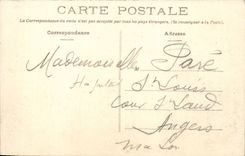 CARTE POSTALE
La Correspondance du recto n'est pas acceptée par tous les pays étrangers. (Se renseigner à la Poste).
Correspondance
Adresse
Mademoiselle Paré
Hopital St Louis
Cour St Laud
Angers